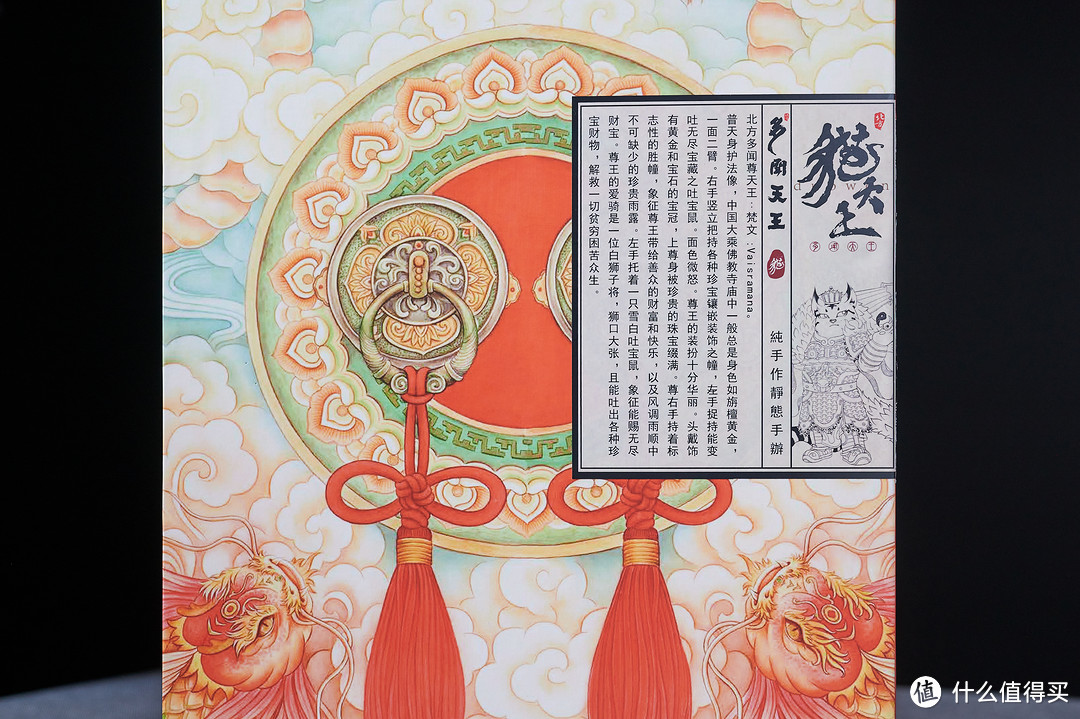 北方
貓天王
多闻天王
多聞天王
貓
純手作靜態手辦
北方多闻尊天王：梵文：Vaisramana。
普天身护法像，中国大乘佛教寺庙中一般总是身色如旃檀黄金，
一面二臂。右手竖立把持各种珍宝镶嵌装饰之幢，左手捉持能变
吐无尽宝藏之吐宝鼠。面色微怒。尊王的装扮十分华丽。头戴饰
有黄金和宝石的宝冠，上尊身被珍贵的珠宝缀满。尊右手持着标
志性的胜幢，象征尊王带给善众的财富和快乐，以及风调雨顺中
不可缺少的珍贵雨露。左手托着一只雪白吐宝鼠，象征能赐无尽
财宝。尊王的爱骑是一位白狮子将，狮口大张，且能吐出各种珍
宝财物，解救一切贫穷困苦众生。
值 什么值得买